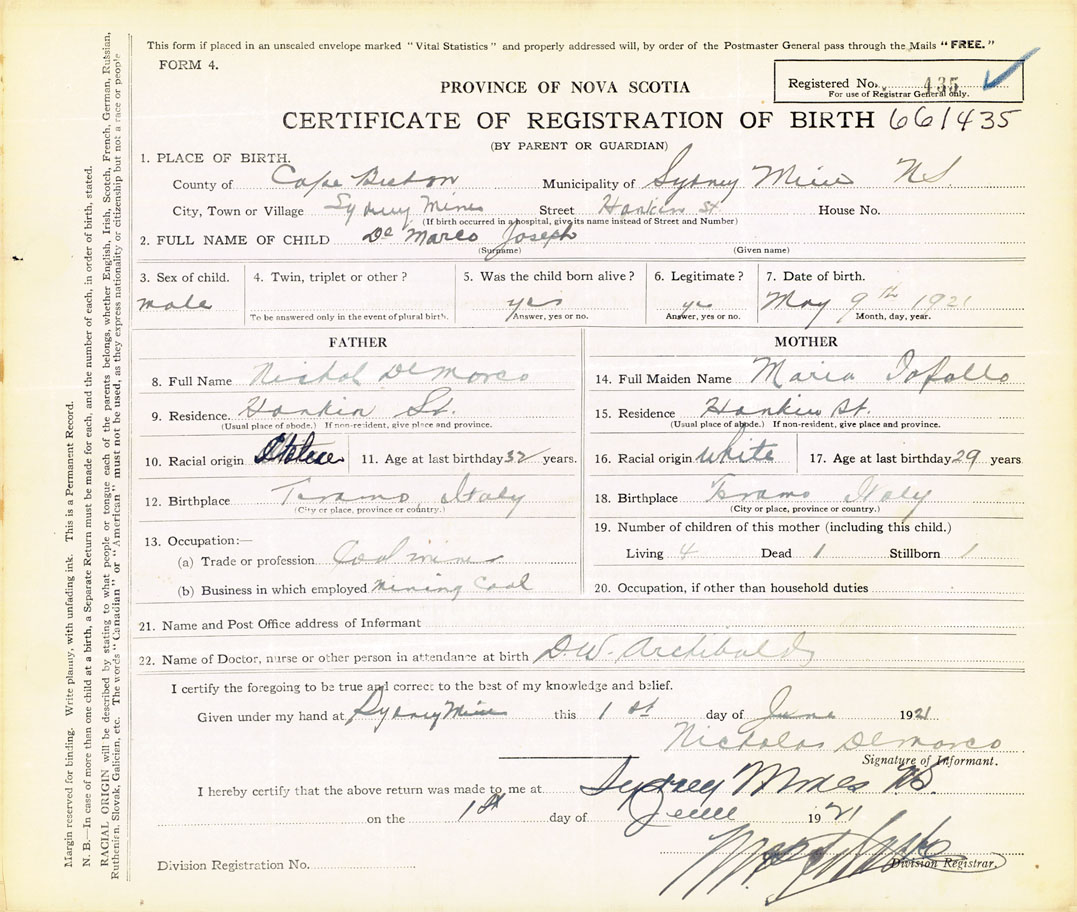 This form if placed in an unsealed envelope marked "Vital Statistics" and properly addressed will, by order of the Postmaster General pass through the Mails "FREE."
FORM 4.
Registered No. 435
For use of Registrar General only.
PROVINCE OF NOVA SCOTIA
CERTIFICATE OF REGISTRATION OF BIRTH 661435
(BY PARENT OR GUARDIAN)
1. PLACE OF BIRTH.
County of Cape Breton Municipality of Sydney Mines NS.
City, Town or Village Sydney Mines Street Hankin St. House No.
(If birth occurred in a hospital, give its name instead of Street and Number)
2. FULL NAME OF CHILD De Marco Joseph
(Surname) (Given name)
3. Sex of child. 4. Twin, triplet or other? 5. Was the child born alive? 6. Legitimate? 7. Date of birth.
male yes yes May 9th 1921
To be answered only in the event of plural birth. Answer, yes or no. Answer, yes or no. Month, day, year.
FATHER
8. Full Name Nichol DeMarco
9. Residence Hankin St.
(Usual place of abode.) If non-resident, give place and province.
10. Racial origin 11. Age at last birthday 32 years.
12. Birthplace Teramo, Italy
(City or place, province or country.)
13. Occupation:—
(a) Trade or profession Coal miner
(b) Business in which employed Mining Coal
MOTHER
14. Full Maiden Name Maria
15. Residence Hankin St.
(Usual place of abode.) If non-resident, give place and province.
16. Racial origin White 17. Age at last birthday 29 years
18. Birthplace Teramo Italy
(City or place, province or country.)
19. Number of children of this mother (including this child.)
Living 4 Dead 1 Stillborn 1
20. Occupation, if other than household duties
21. Name and Post Office address of Informant
22. Name of Doctor, nurse or other person in attendance at birth D.W. Archibald
I certify the foregoing to be true and correct to the best of my knowledge and belief.
Given under my hand at Sydney Mines this 1st day of June 1921
Nicholas Demarco
Signature of Informant.
I hereby certify that the above return was made to me at Sydney Mines NS.
on the 1st day of June 1921
Division Registrar.
Division Registration No.
Margin reserved for binding. Write plainly, with unfading ink. This is a Permanent Record.
N. B.—In case of more than one child at a birth, a Separate Return must be made for each, and the number of each, in order of birth, stated.
RACIAL ORIGIN will be described by stating to what people or tongue each of the parents belongs, whether English, Irish, Scotch, French, German, Russian,
Ruthenian, Slovak, Galician, etc. The words "Canadian" or "American" must not be used, as they express nationality or citizenship but not a race or people